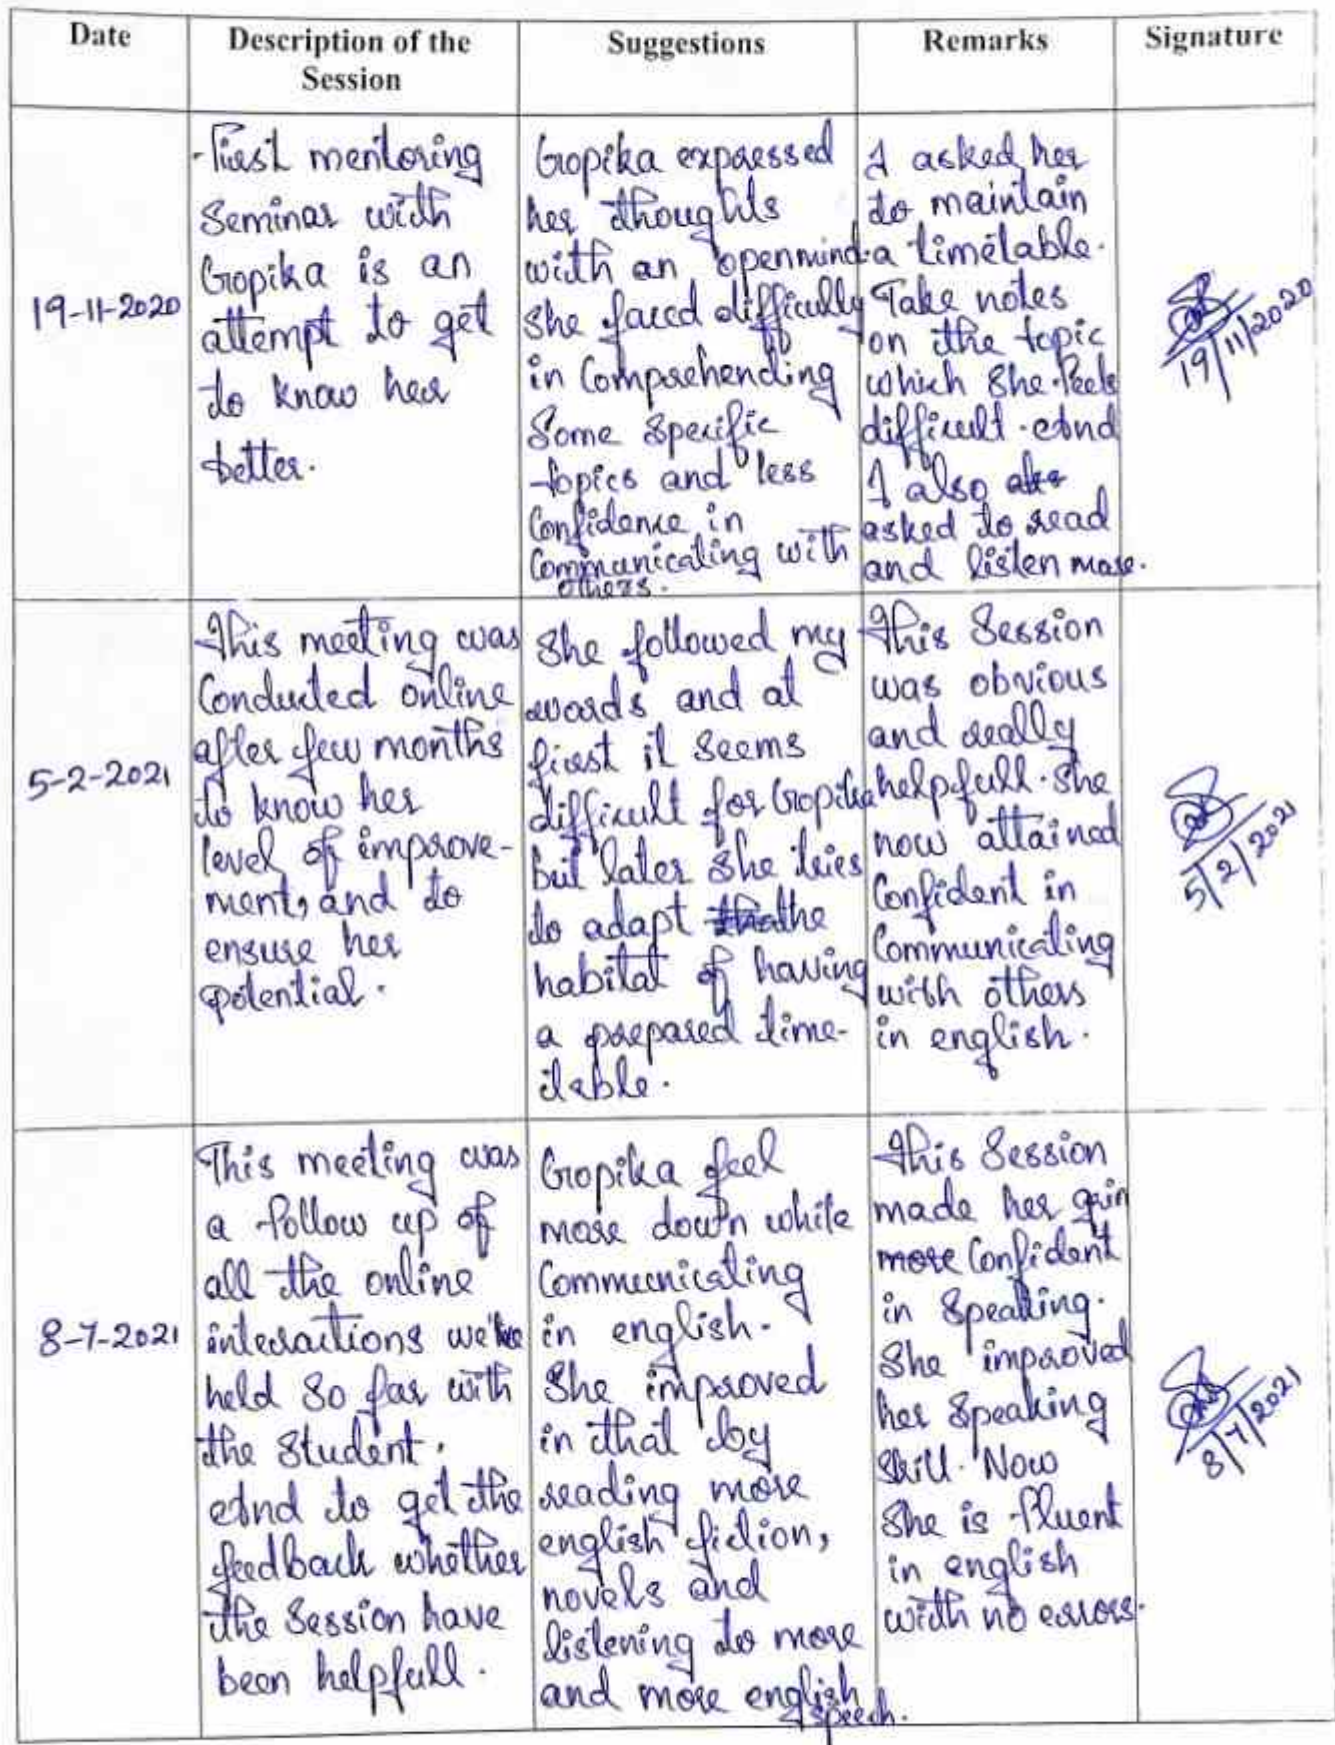 Date
Description of the
Session
Suggestions
Remarks
Signature
19-11-2020
First mentoring
Seminar with
Gopika is an
attempt to get
to know her
better.
Gopika expressed
her thoughts
with an openmind.
She faced difficully
in Comprehending
Some Specific
topics and less
Confidence in
Communicating with
others.
I asked her
to maintain
a timetable.
Take notes
on the topic
which She feels
difficult. And
I also
asked to read
and listen more.
19/11/2020
5-2-2021
This meeting was
Conducted online
after few months
to know her
level of improve-
ment, and to
ensure her
potential.
She followed my
words and at
first it Seems
difficult for Gopika
but later She tries
to adapt the
habitat of having
a prepared time-
table.
This Session
was obvious
and really
helpfull. She
now attained
Confident in
Communicating
with others
in english.
5/2/2021
8-7-2021
This meeting was
a follow up of
all the online
interactions we've
held So far with
the Student.
And to get the
feedback whether
the Session have
been helpfull.
Gopika feel
more down while
Communicating
in english.
She improved
in that by
reading more
english fiction,
novels and
listening to more
and more english
speech.
This Session
made her gain
more Confident
in Speaking.
She improved
her Speaking
Skill. Now
She is fluent
in english
with no errors.
8/7/2021